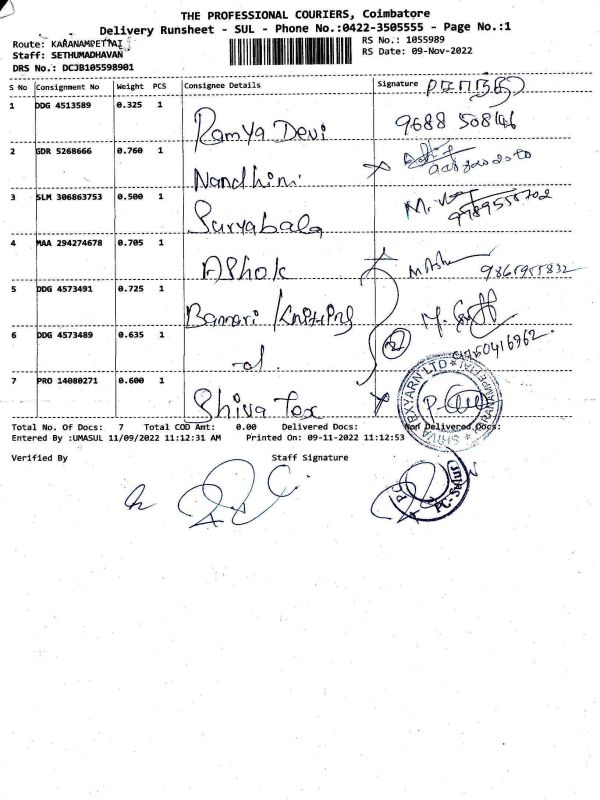 THE PROFESSIONAL COURIERS, Coimbatore
Delivery Runsheet - SUL - Phone No.:0422-3505555 - Page No.:1
Route: KARANAMPETTAI
Staff: SETHUMADHAVAN
DRS No.: DCJB105598901
RS No.: 1055989
RS Date: 09-Nov-2022
S No Consignment No Weight PCS Consignee Details Signature
1 DDG 4513589 0.325 1 Ramya Devi 9688 508146
2 GDR 5268666 0.760 1 Nandhini
3 SLM 306863753 0.500 1 Suryabala
4 MAA 294274678 0.705 1 AShok 9865955832
5 DDG 4573491 0.725 1 Bannari Knitting
6 DDG 4573489 0.635 1 9750416962
7 PRO 14080271 0.600 1 Shiva Tex
Total No. Of Docs: 7 Total COD Amt: 0.00 Delivered Docs: Non Delivered Docs:
Entered By :UMASUL 11/09/2022 11:12:31 AM Printed On: 09-11-2022 11:12:53
Verified By Staff Signature